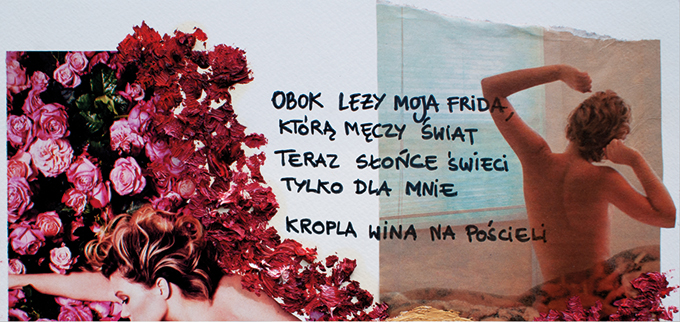 OBOK LEŻY MOJA FRIDA,
KTÓRĄ MĘCZY ŚWIAT
TERAZ SŁOŃCE ŚWIECI
TYLKO DLA MNIE
KROPLA WINA NA POŚCIELI